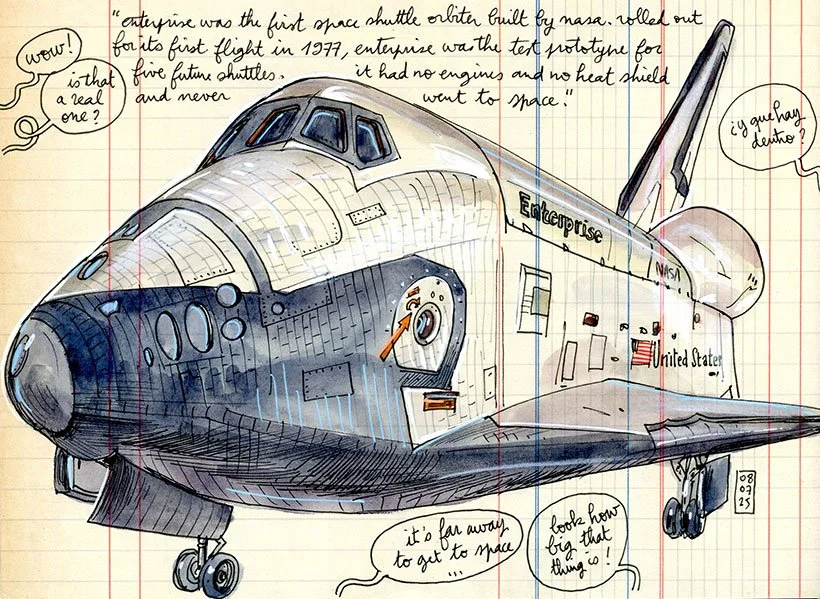 "enterprise was the first space shuttle orbiter built by nasa. rolled out
for its first flight in 1977, enterprise was the test prototype for
five future shuttles. it had no engines and no heat shield
and never went to space."
wow!
is that
a real
one?
¿y que hay
dentro?
Enterprise
NASA
United States
it's far away
to get to space
...
look how
big that
thing is!
08
07
25